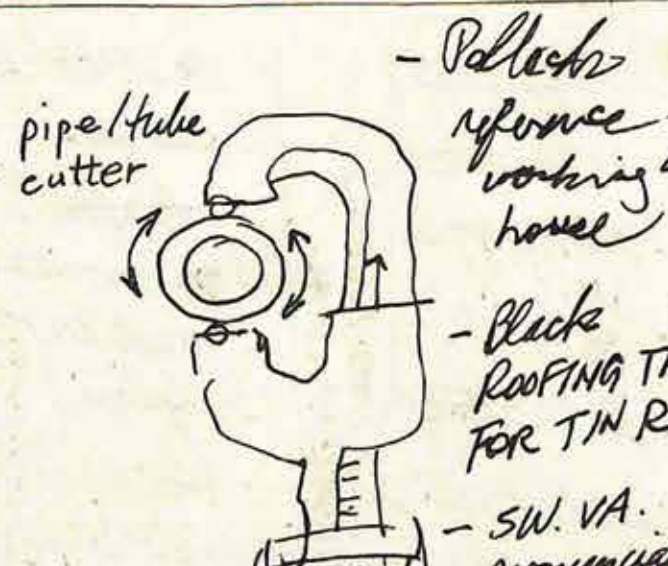 pipe/tube
cutter
-
reference
working
house
- Black
ROOFING
FOR TIN
- SW. VA.